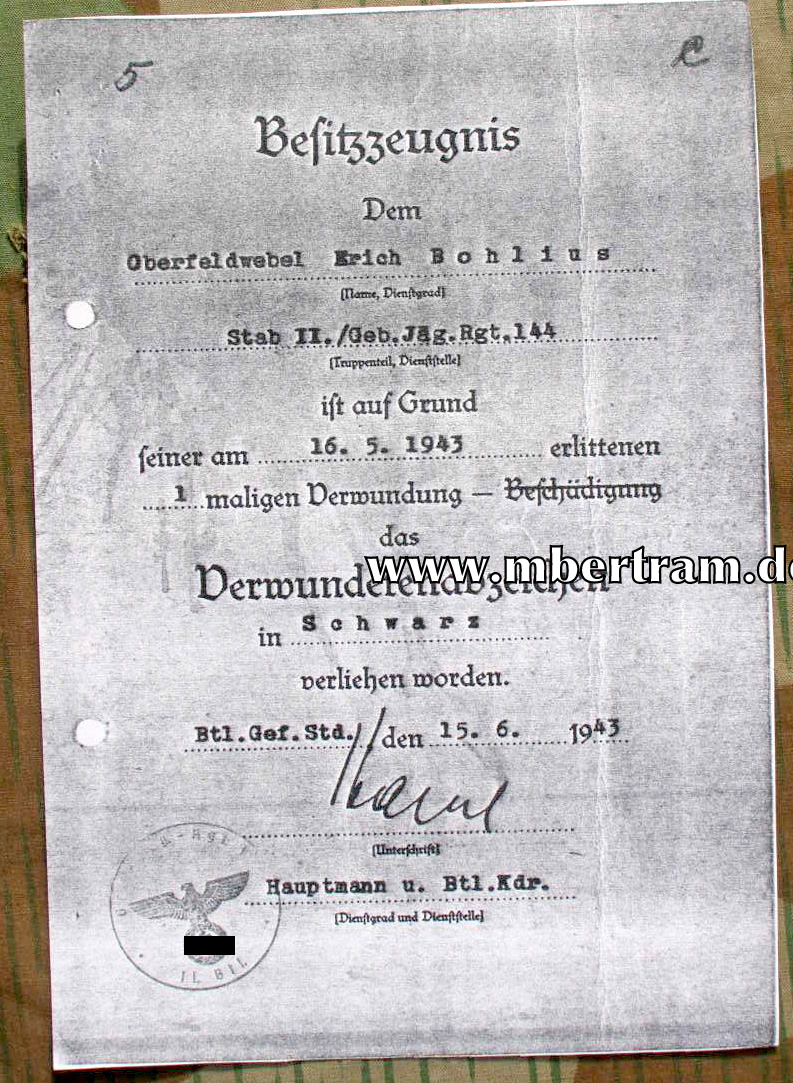 5 e
Beſitzzeugnis
Dem
Oberfeldwebel Erich Bohlius
(Name, Dienſtgrad)
Stab II./Geb.Jäg.Rgt.144
(Truppenteil, Dienſtſtelle)
iſt auf Grund
ſeiner am 16. 5. 1943 erlittenen
1 maligen Verwundung — Beſchädigung
das
www.mbertram.de
Verwundetenabzeichen
in Schwarz
verliehen worden.
Btl.Gef.Std./ den 15. 6. 1943
(Unterſchrift)
Hauptmann u. Btl.Kdr.
(Dienſtgrad und Dienſtſtelle)
II. Btl.